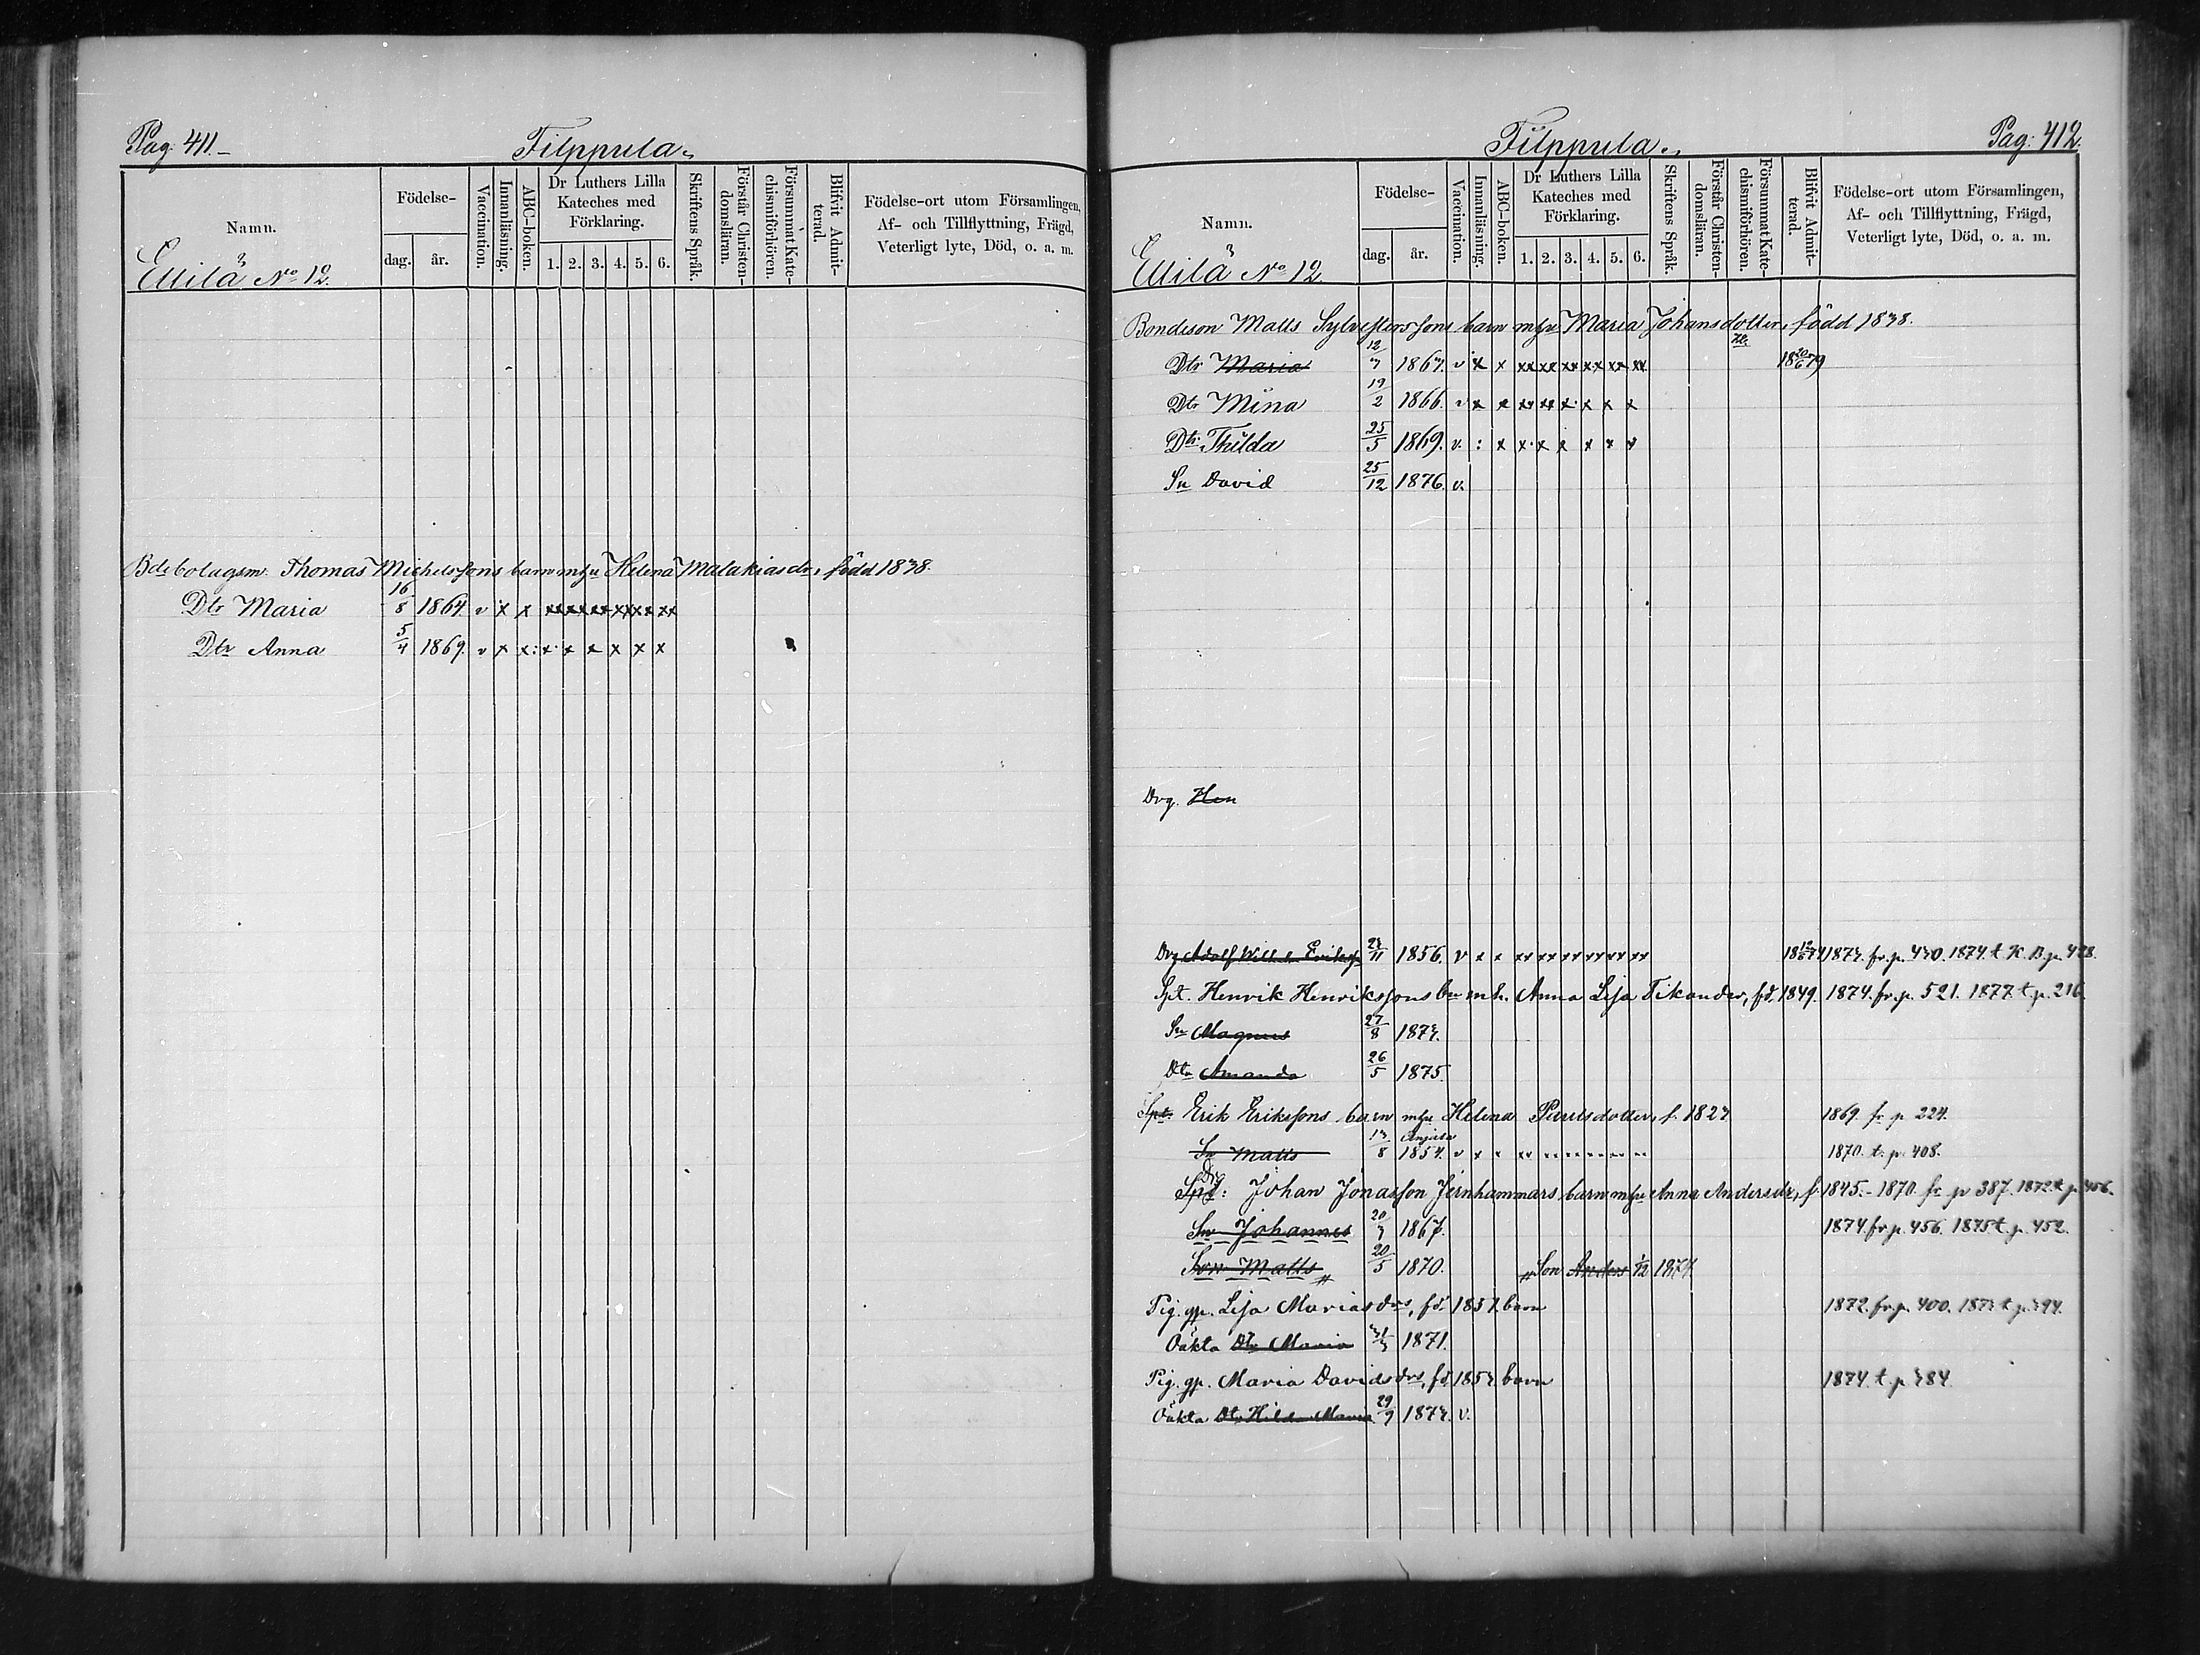 Pag: 411.
Filppula.
Namn.
Födelse-
dag. år.
Vaccination.
Innanläsning.
ABC-boken.
Dr Luthers Lilla Kateches med Förklaring.
1. 2. 3. 4. 5. 6.
Skriftens Språk.
Förstår Christen-domsläran.
Försummat Kate-chismiförhören.
Blifvit Admit-terad.
Födelse-ort utom Församlingen,
Af- och Tillflyttning, Frägd,
Veterligt lyte, Död, o. a. m.
Ellilä No 12.
Thomas Michelssons barn m hu Helena Malakiasdr, född 1838.
Dtr Maria 16/8 1864. v x x xx xx xx xx xx xx
Dtr Anna 5/4 1869. v x x: x x x x x x
Pag: 412.
Filppula.
Namn.
Födelse-
dag. år.
Vaccination.
Innanläsning.
ABC-boken.
Dr Luthers Lilla Kateches med Förklaring.
1. 2. 3. 4. 5. 6.
Skriftens Språk.
Förstår Christen-domsläran.
Försummat Kate-chismiförhören.
Blifvit Admit-terad.
Födelse-ort utom Församlingen,
Af- och Tillflyttning, Frägd,
Veterligt lyte, Död, o. a. m.
Ellilä No 12.
Bondeson Matts Sylvesterssons barn m hu Maria Johansdotter, född 1838.
Dtr Maria 12/3 1863. v x x xx xx xx xx xx xx 18 20/6 79
Dtr Mina 19/2 1866. v x x xx xx x x x x
Dtr Thilda 25/5 1869. v. : x x x x x x x
Sn David 25/12 1876. v.
Drg. Hen
Drg Adolf Wilh. Eriksson /11 1856. v x x xx xx xx xx xx xx 1873. fr. p. 430. 1874. t K.B. p. 428.
Spt. Henrik Henrikssons bn m h. Anna Lisa Tikander, fd. 1849. 1874. fr. p. 521. 1877. t p. 216
Sn Magnus 27/8 1873.
Dtr Amanda 26/5 1875.
Spt. Erik Erikssons barn m hu Helena Paulsdotter, f. 1823 1869. fr p 224.
Sn Matts 13/8 1854. v x 1870. t. p. 408.
Drg
Spt: Johan Jonasson Jernhammars barn m hu Anna Andersdr, f. 1845. - 1870. fr p 387. 1872 t p. 456.
Sn Johannes 20/3 1867. 1874. fr p. 456. 1875 t. p. 452.
Son Matts 20/5 1870. Son Anders 1/12 187
Pig. gp. Lisa Mariasdrs, fd. 1837. barn 1872. fr. p. 400. 1873 t p. 394.
Oäkta Dtr Maria 1871.
Pig. gp. Maria Davidsdrs, fd. 1853. barn 1874. t. p 384.
Oäkta Dtr Hilda Maria 29/9 1873. v.